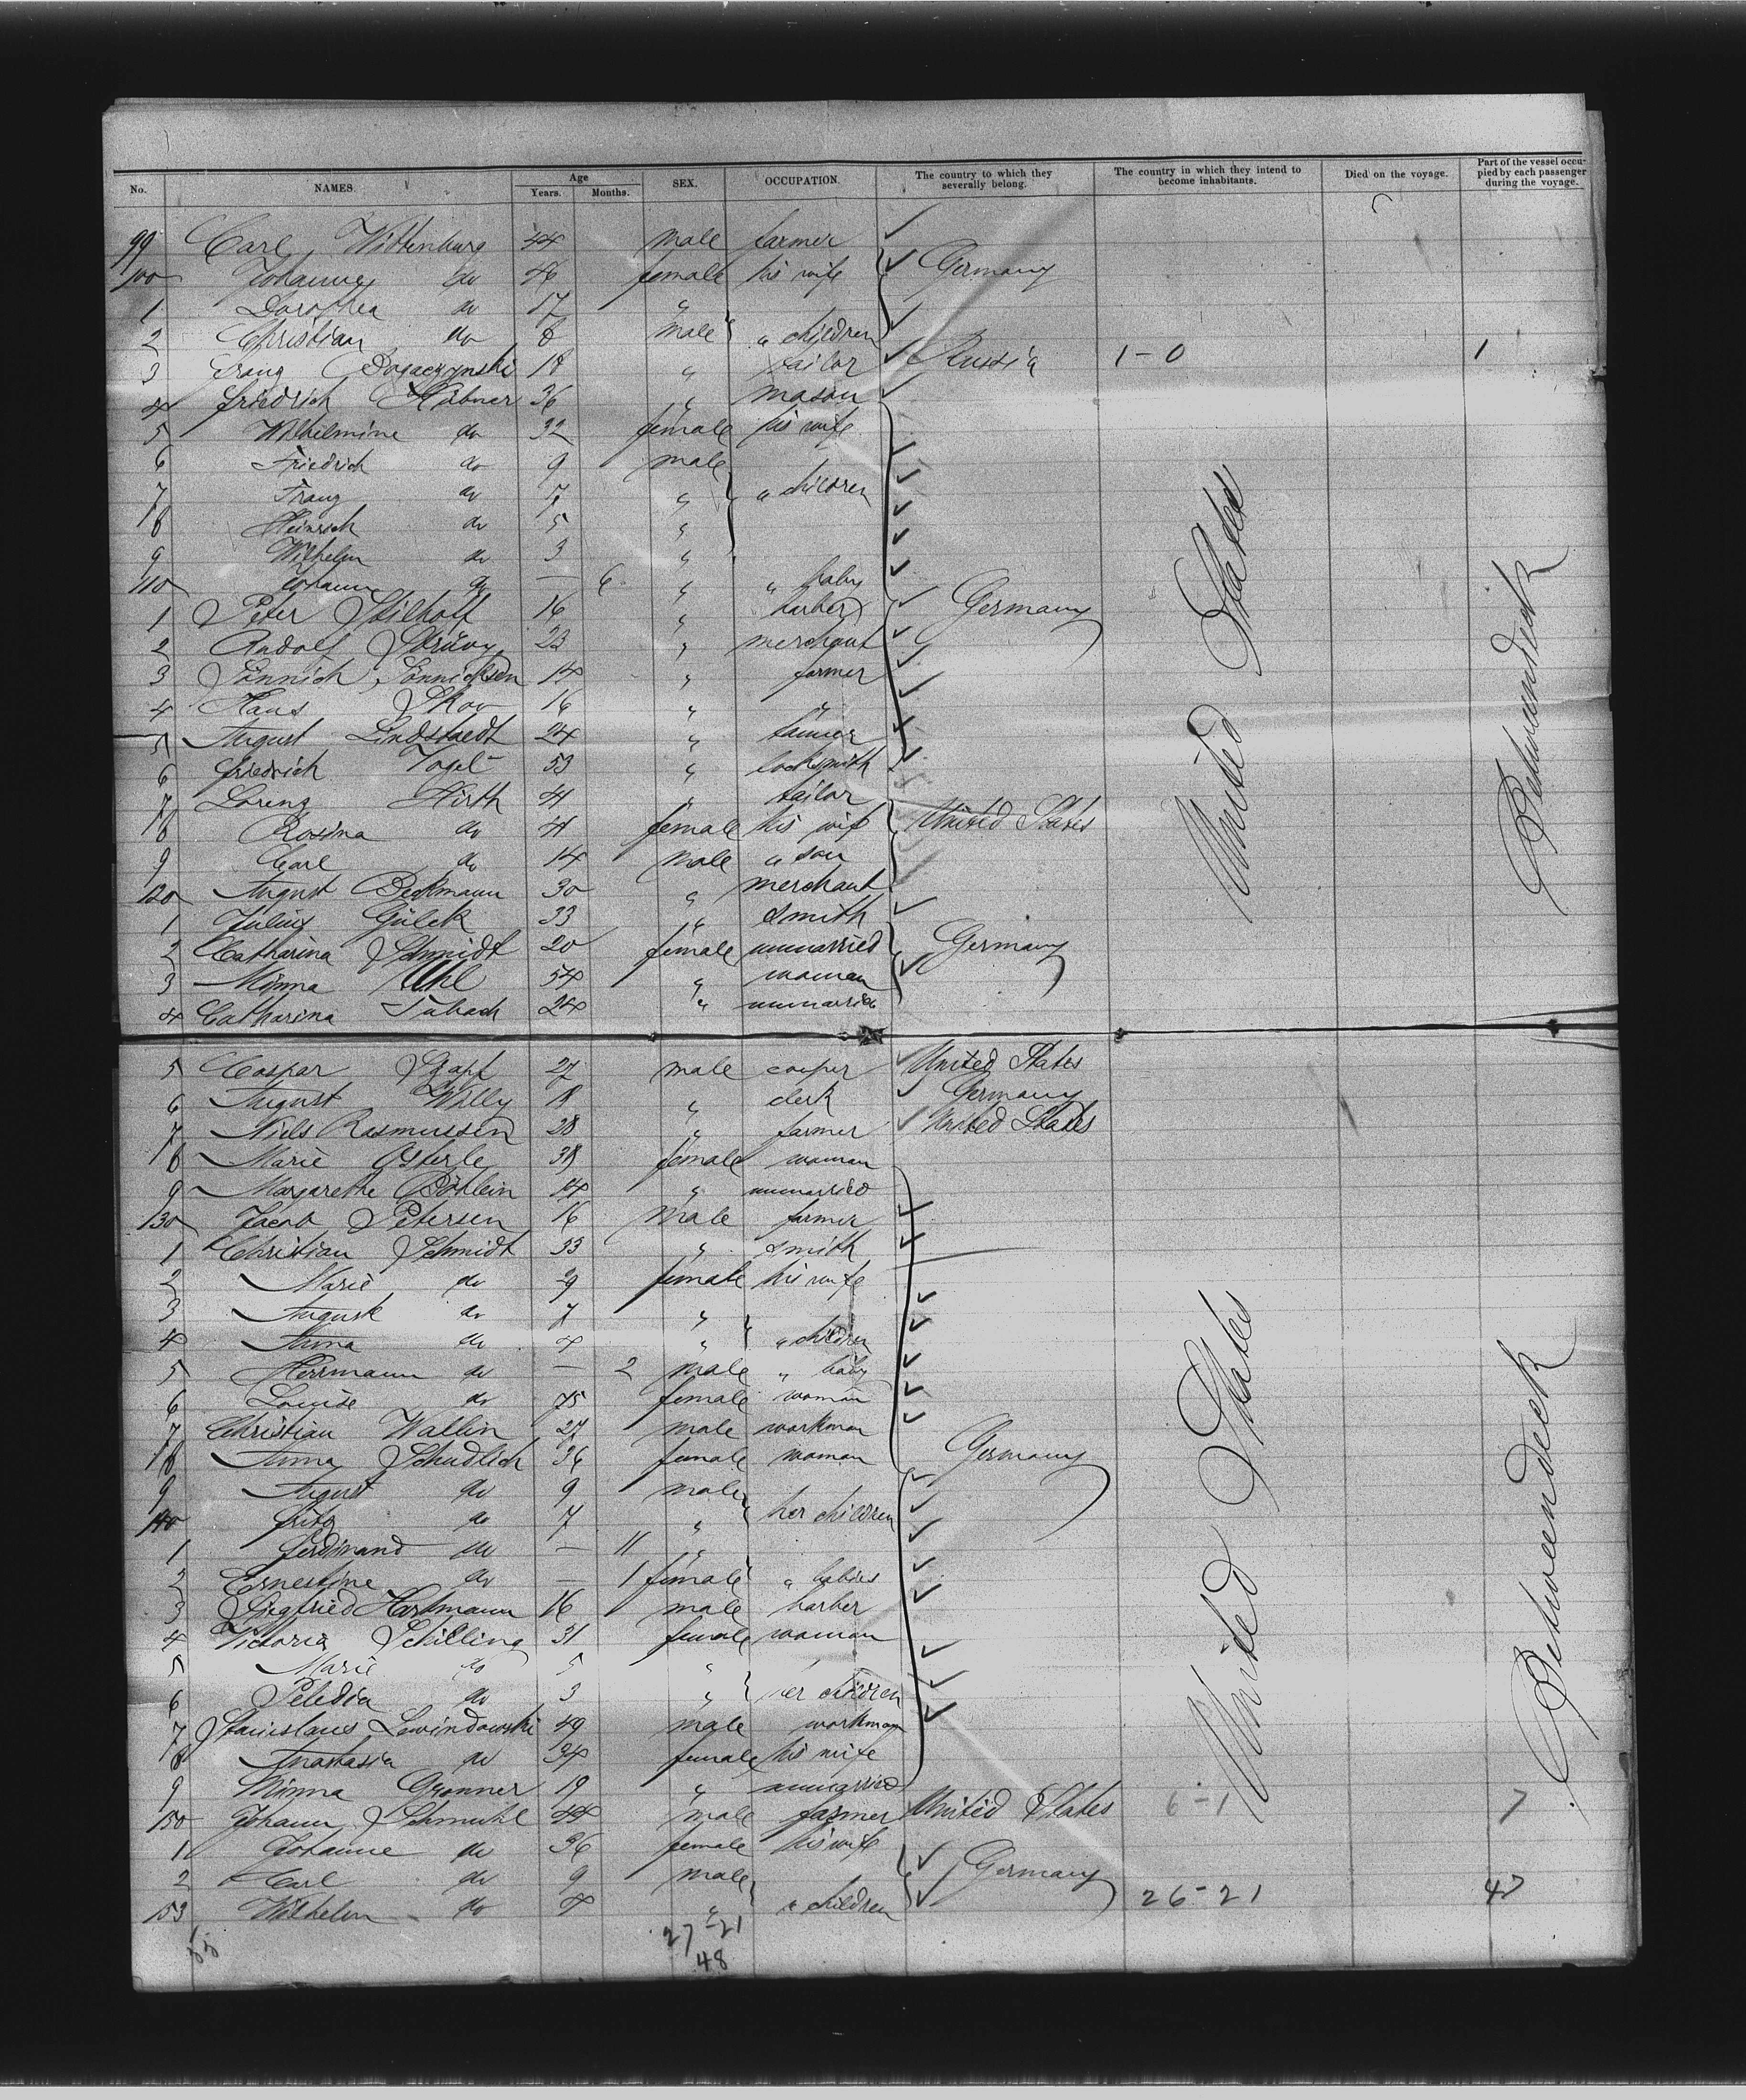 No. NAMES. Age Years. Months. SEX. OCCUPATION. The country to which they severally belong. The country in which they intend to become inhabitants. Died on the voyage. Part of the vessel occupied by each passenger during the voyage.
99 Carl Wittenburg 44 male farmer
100 Johanne do 46 female his wife Germany
1 Dorothea do 17 "
2 Christian do 8 male " children
3 Franz 18 " tailor Russia 1-0 1
4 Friedrich Hübner 36 " mason
5 Wilhelmine do 32 female his wife
6 Friedrich do 9 male
7 Franz do 7 " " children
8 Heinrich do 5 "
9 Wilhelm do 3 "
110 Johann do — 6 " " baby
1 Peter 16 " barber Germany
2 Rudolf 23 " merchant
3 Sönnich Sönnichsen 14 " farmer
4 Hans Skov 16 " "
5 August Lindstaedt 24 "
6 Friedrich Vogel 53 " locksmith
7 Lorenz Hirth 41 " tailor
8 Rosina do 41 female his wife United States
9 Carl do 14 male " son
120 August Beckmann 30 " merchant
1 Julius Gülck 33 " smith
2 Catharina Schmidt 20 female unmarried Germany
3 Minna Uhl 54 " woman
4 Catharina 24 " unmarried
United States
Betweendeck
5 Caspar Stapf 27 male cooper United States
6 August Willy 18 " clerk Germany
7 Niels Rasmussen 28 " farmer United States
8 Marie Osterle 38 female woman
9 Margarethe 14 " unmarried
130 Jacob Petersen 16 male farmer
1 Christian Schmidt 33 " smith
2 Marie do 29 female his wife
3 Auguste do 7 "
4 Anna do 4 " " children
5 Herrmann do — 2 male " baby
6 Louise do 75 female woman
7 Christian Wallin 27 male workman
8 Anna Schudlich 36 female woman Germany
9 August do 9 male
140 Fritz do 7 " her children
1 Ferdinand do — 11 "
2 Ernestine do — 1 female " babies
3 Siegfried Hartmann 16 male barber
4 Victoria Schilling 31 female woman
5 Marie do 5 "
6 do 3 " her children
7 Stanislaus Lewindowski 49 male workman
8 Anastasia do 34 female his wife
9 Minna Gronner 19 " unmarried
150 Johann Schmuhl 44 male farmer United States 6-1 7
1 Johanne do 36 female his wife
2 Carl do 9 male Germany
153 Wilhelm do 4 " " children 26-21 47
United States
Betweendeck
55 27-21
48